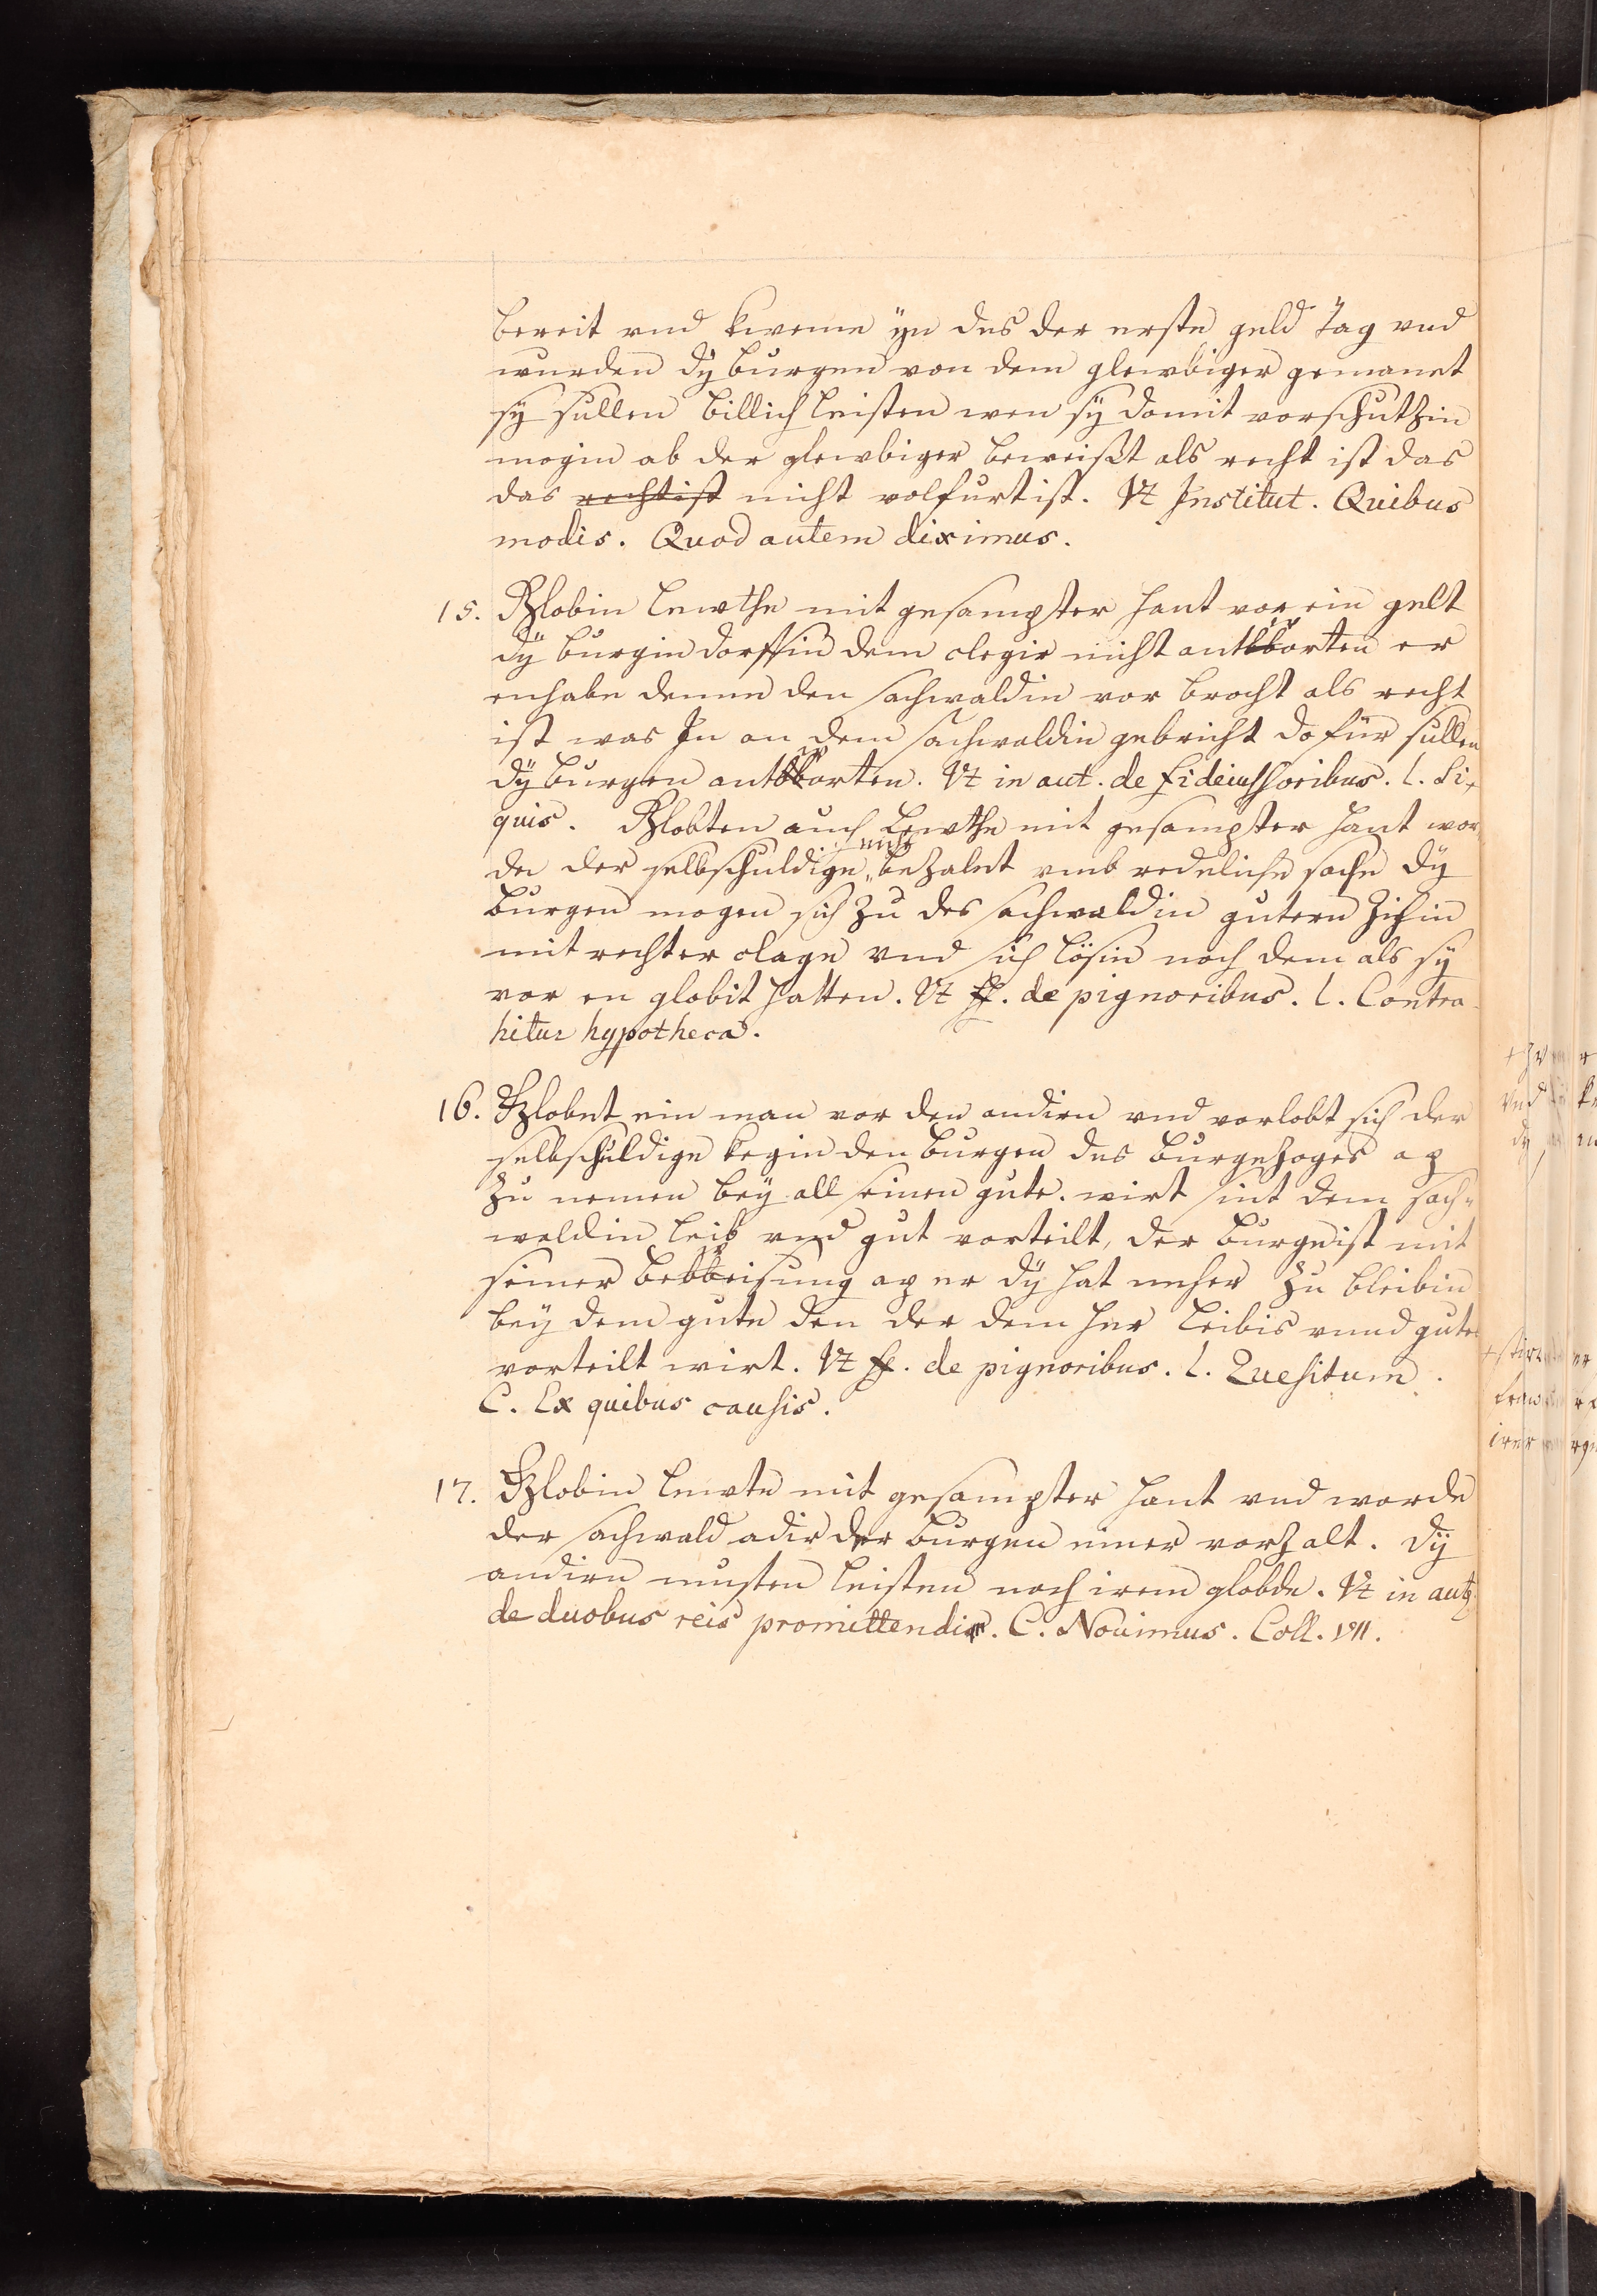 bereit vnd kweme ÿn des der erste geld Tag vnd
wurden dÿ burgen von dem glewbiger gemanet
sÿ sullen billich leisten wen sÿ domit vorschuthin
mogin ab der glewbiger beweißt als recht ist das
das rechtist nicht volfurt ist. Vt Institut. Quibus
modis. Quod autem diximus.
15. Globin lewthe mit gesampter hant vor ein gelt
dÿ burgin dorffin dem clegir nicht antworten er
enhabe denne den sachwaldin vor brocht als recht
ist was In an dem sachwaldin gebricht do für sullen
dÿ burgen antworten. Vt in aut. de fideiussoribus. l. Si
quis. Globten auch Lewthe mit gesampter hant wor
de der selbschuldige nicht bezalet vmb redeliche sache dÿ
burgen mogen sich zu des sachwaldin gutern Zihin
mit rechter clage vnd sich lösin noch dem als sÿ
vor en globit hatten. Vt ff. de pignoribus. l. Contra
hitur hypotheca.
16. Globet ein man vor den andirn vnd vorlobt sich der
selbschuldige kegin den burgen des burgezoges ap
zu nemen beÿ all seinen gute. wirt sint dem sach-
waldin leib vnd gut vorteilt, der burge ist mit
seiner beweisung ap er dÿ hat neher zu bleibin
beÿ dem gute den der dem her leibis vnnd gutes
vorteilt wirt. Vt ff. de pignoribus. l. Quesitum.
C. Ex quibus causis.
17. Globin lewte mit gesampter hant vnd worde
der sachwald adir der burgen einer vorzalt. dÿ
andirn musten leisten noch irem globde. Vt in aut
de duobus reis promittendi. C. Nouimus. Coll. VII.